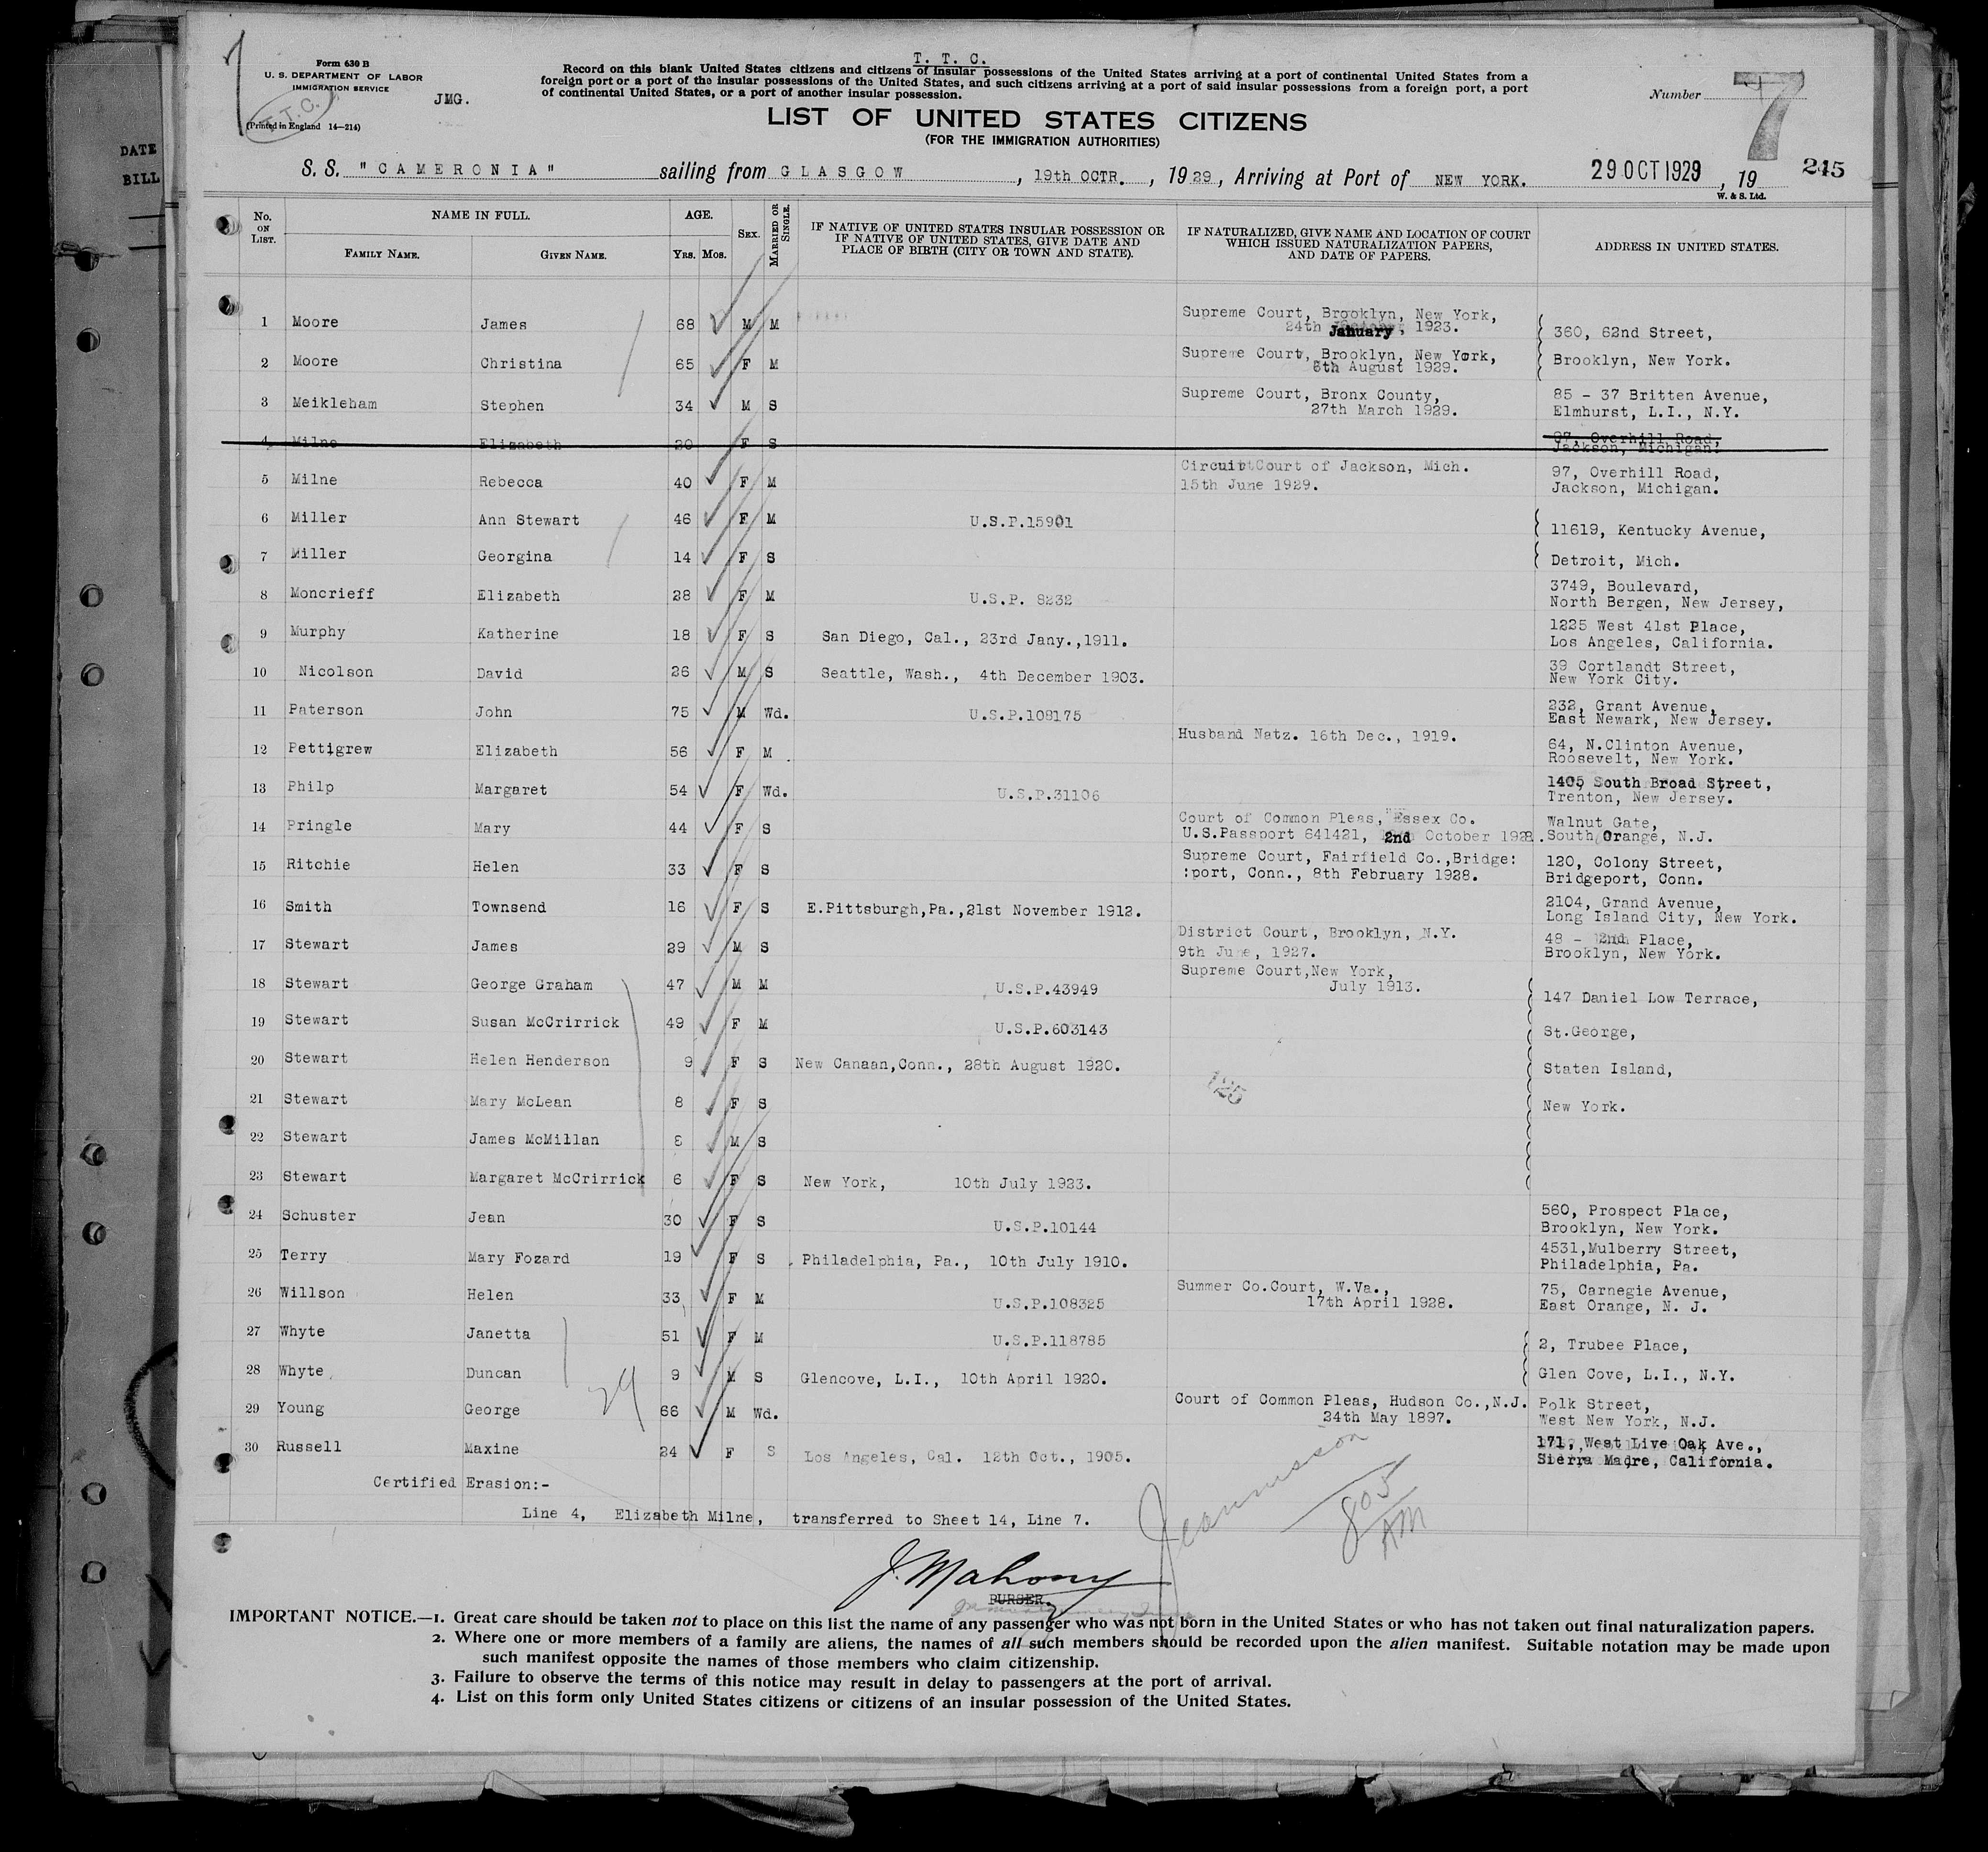 7
Form 630 B
U. S. DEPARTMENT OF LABOR
IMMIGRATION SERVICE
T.T.C.
JMG.
(Printed in England 14—214)
T. T. C.
Record on this blank United States citizens and citizens of insular possessions of the United States arriving at a port of continental United States from a
foreign port or a port of the insular possessions of the United States, and such citizens arriving at a port of said insular possessions from a foreign port, a port
of continental United States, or a port of another insular possession.
Number 7
LIST OF UNITED STATES CITIZENS
(FOR THE IMMIGRATION AUTHORITIES)
DATE
BILL
S. S. "CAMERONIA" sailing from GLASGOW, 19th OCTR., 1929, Arriving at Port of NEW YORK. 29 OCT 1929, 19 245
W. & S. Ltd.
No. ON LIST. NAME IN FULL. AGE. SEX. MARRIED OR SINGLE. IF NATIVE OF UNITED STATES INSULAR POSSESSION OR IF NATIVE OF UNITED STATES, GIVE DATE AND PLACE OF BIRTH (CITY OR TOWN AND STATE). IF NATURALIZED, GIVE NAME AND LOCATION OF COURT WHICH ISSUED NATURALIZATION PAPERS, AND DATE OF PAPERS. ADDRESS IN UNITED STATES.
FAMILY NAME. GIVEN NAME. YRS. MOS.
1 Moore James 68 M M Supreme Court, Brooklyn, New York, 24th January, 1923. 360, 62nd Street,
2 Moore Christina 65 F M Supreme Court, Brooklyn, New York, 6th August 1929. Brooklyn, New York.
3 Meikleham Stephen 34 M S Supreme Court, Bronx County, 27th March 1929. 85 - 37 Britten Avenue, Elmhurst, L.I., N.Y.
4 Milne Elizabeth 20 F S 97, Overhill Road, Jackson, Michigan.
5 Milne Rebecca 40 F M Circuit Court of Jackson, Mich. 15th June 1929. 97, Overhill Road, Jackson, Michigan.
6 Miller Ann Stewart 46 F M U.S.P.15901 11619, Kentucky Avenue,
7 Miller Georgina 14 F S Detroit, Mich.
8 Moncrieff Elizabeth 28 F M U.S.P. 8232 3749, Boulevard, North Bergen, New Jersey,
9 Murphy Katherine 18 F S San Diego, Cal., 23rd Jany.,1911. 1225 West 41st Place, Los Angeles, California.
10 Nicolson David 26 M S Seattle, Wash., 4th December 1903. 39 Cortlandt Street, New York City.
11 Paterson John 75 M Wd. U.S.P.108175 232, Grant Avenue, East Newark, New Jersey.
12 Pettigrew Elizabeth 56 F M Husband Natz. 16th Dec., 1919. 64, N.Clinton Avenue, Roosevelt, New York.
13 Philp Margaret 54 F Wd. U.S.P.31106 1405 South Broad Street, Trenton, New Jersey.
14 Pringle Mary 44 F S Court of Common Pleas, Essex Co. U.S.Passport 641421, 2nd October 1928. Walnut Gate, South Orange, N.J.
15 Ritchie Helen 33 F S Supreme Court, Fairfield Co.,Bridge: :port, Conn., 8th February 1928. 120, Colony Street, Bridgeport, Conn.
16 Smith Townsend 16 F S E.Pittsburgh,Pa.,21st November 1912. 2104, Grand Avenue, Long Island City, New York.
17 Stewart James 29 M S District Court, Brooklyn, N.Y. 9th June, 1927. 48 - 2nd Place, Brooklyn, New York.
18 Stewart George Graham 47 M M U.S.P.43949 Supreme Court,New York, July 1913. 147 Daniel Low Terrace,
19 Stewart Susan McCrirrick 49 F M U.S.P.603143 St.George,
20 Stewart Helen Henderson 9 F S New Canaan,Conn., 28th August 1920. Staten Island,
21 Stewart Mary McLean 8 F S 125 New York.
22 Stewart James McMillan 8 M S
23 Stewart Margaret McCrirrick 6 F S New York, 10th July 1923.
24 Schuster Jean 30 F S U.S.P.10144 560, Prospect Place, Brooklyn, New York.
25 Terry Mary Fozard 19 F S Philadelphia, Pa., 10th July 1910. 4531,Mulberry Street, Philadelphia, Pa.
26 Willson Helen 33 F M U.S.P.108325 Summer Co.Court, W.Va., 17th April 1928. 75, Carnegie Avenue, East Orange, N. J.
27 Whyte Janetta 51 F M U.S.P.118785 2, Trubee Place,
28 Whyte Duncan 9 M S Glencove, L.I., 10th April 1920. Glen Cove, L.I., N.Y.
29 Young George 66 M Wd. Court of Common Pleas, Hudson Co.,N.J. 24th May 1897. Polk Street, West New York, N.J.
30 Russell Maxine 24 F S Los Angeles, Cal. 12th Oct., 1905. 171, West Live Oak Ave., Sierra Madre, California.
29
Certified Erasion:-
Line 4, Elizabeth Milne, transferred to Sheet 14, Line 7.
805
AM
J. Mahony
PURSER.
IMPORTANT NOTICE.—1. Great care should be taken not to place on this list the name of any passenger who was not born in the United States or who has not taken out final naturalization papers.
2. Where one or more members of a family are aliens, the names of all such members should be recorded upon the alien manifest. Suitable notation may be made upon
such manifest opposite the names of those members who claim citizenship.
3. Failure to observe the terms of this notice may result in delay to passengers at the port of arrival.
4. List on this form only United States citizens or citizens of an insular possession of the United States.